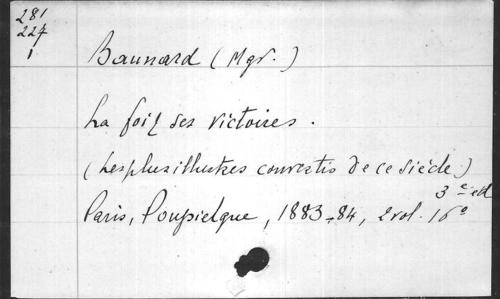 281
227
1
Baunard (Mgr.)
La foi & ses victoires.
(Les plus illustres convertis de ce siècle)
3e ed
Paris, Poussielgue, 1883-84, 2 vol. 16°